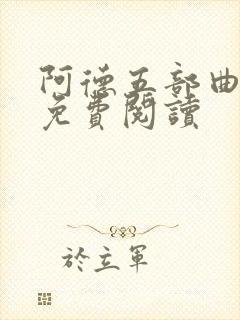 阿德五部曲
免費閱讀
於立軍